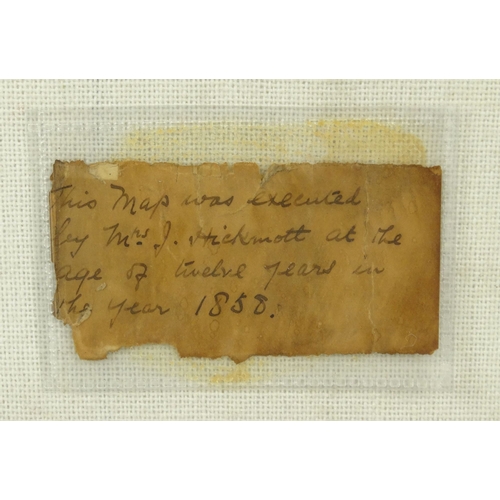 This Map was executed
by Mrs J. Hickmott at the
age of twelve years in
the year 1858.